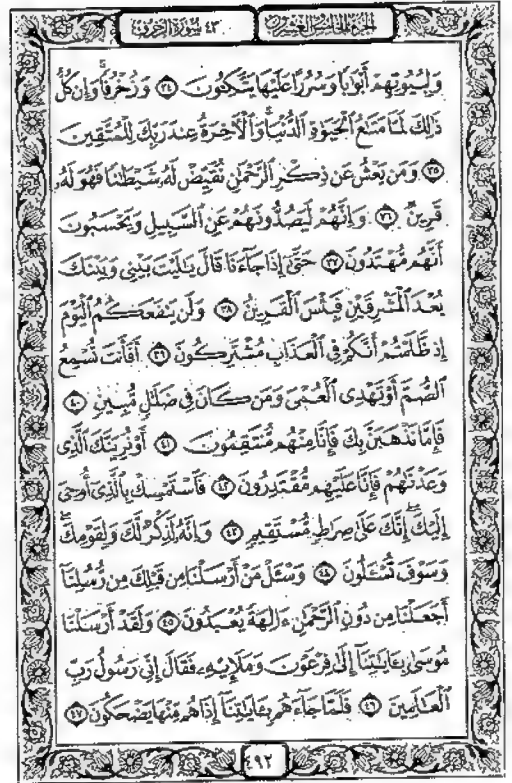 الجزء الخامس والعشرون ٤٣ سورة الزخرف
وَلِبُيُوتِهِمْ أَبْوَٰبًا وَسُرُرًا عَلَيْهَا يَتَّكِـُٔونَ ٣٤ وَزُخْرُفًا ۚ وَإِن كُلُّ
ذَٰلِكَ لَمَّا مَتَٰعُ ٱلْحَيَوٰةِ ٱلدُّنْيَا ۚ وَٱلْأَخِرَةُ عِندَ رَبِّكَ لِلْمُتَّقِينَ
٣٥ وَمَن يَعْشُ عَن ذِكْرِ ٱلرَّحْمَٰنِ نُقَيِّضْ لَهُۥ شَيْطَٰنًا فَهُوَ لَهُۥ
قَرِينٌ ٣٦ وَإِنَّهُمْ لَيَصُدُّونَهُمْ عَنِ ٱلسَّبِيلِ وَيَحْسَبُونَ
أَنَّهُم مُّهْتَدُونَ ٣٧ حَتَّىٰٓ إِذَا جَآءَنَا قَالَ يَٰلَيْتَ بَيْنِى وَبَيْنَكَ
بُعْدَ ٱلْمَشْرِقَيْنِ فَبِئْسَ ٱلْقَرِينُ ٣٨ وَلَن يَنفَعَكُمُ ٱلْيَوْمَ
إِذ ظَّلَمْتُمْ أَنَّكُمْ فِى ٱلْعَذَابِ مُشْتَرِكُونَ ٣٩ أَفَأَنتَ تُسْمِعُ
ٱلصُّمَّ أَوْ تَهْدِى ٱلْعُمْىَ وَمَن كَانَ فِى ضَلَٰلٍ مُّبِينٍ ٤٠
فَإِمَّا نَذْهَبَنَّ بِكَ فَإِنَّا مِنْهُم مُّنتَقِمُونَ ٤١ أَوْ نُرِيَنَّكَ ٱلَّذِى
وَعَدْنَٰهُمْ فَإِنَّا عَلَيْهِم مُّقْتَدِرُونَ ٤٢ فَٱسْتَمْسِكْ بِٱلَّذِىٓ أُوحِىَ
إِلَيْكَ ۖ إِنَّكَ عَلَىٰ صِرَٰطٍ مُّسْتَقِيمٍ ٤٣ وَإِنَّهُۥ لَذِكْرٌ لَّكَ وَلِقَوْمِكَ ۖ
وَسَوْفَ تُسْـَٔلُونَ ٤٤ وَسْـَٔلْ مَنْ أَرْسَلْنَا مِن قَبْلِكَ مِن رُّسُلِنَآ
أَجَعَلْنَا مِن دُونِ ٱلرَّحْمَٰنِ ءَالِهَةً يُعْبَدُونَ ٤٥ وَلَقَدْ أَرْسَلْنَا
مُوسَىٰ بِـَٔايَٰتِنَآ إِلَىٰ فِرْعَوْنَ وَمَلَإِي۟هِۦ فَقَالَ إِنِّى رَسُولُ رَبِّ
ٱلْعَٰلَمِينَ ٤٦ فَلَمَّا جَآءَهُم بِـَٔايَٰتِنَآ إِذَا هُم مِّنْهَا يَضْحَكُونَ ٤٧
٤٩٢